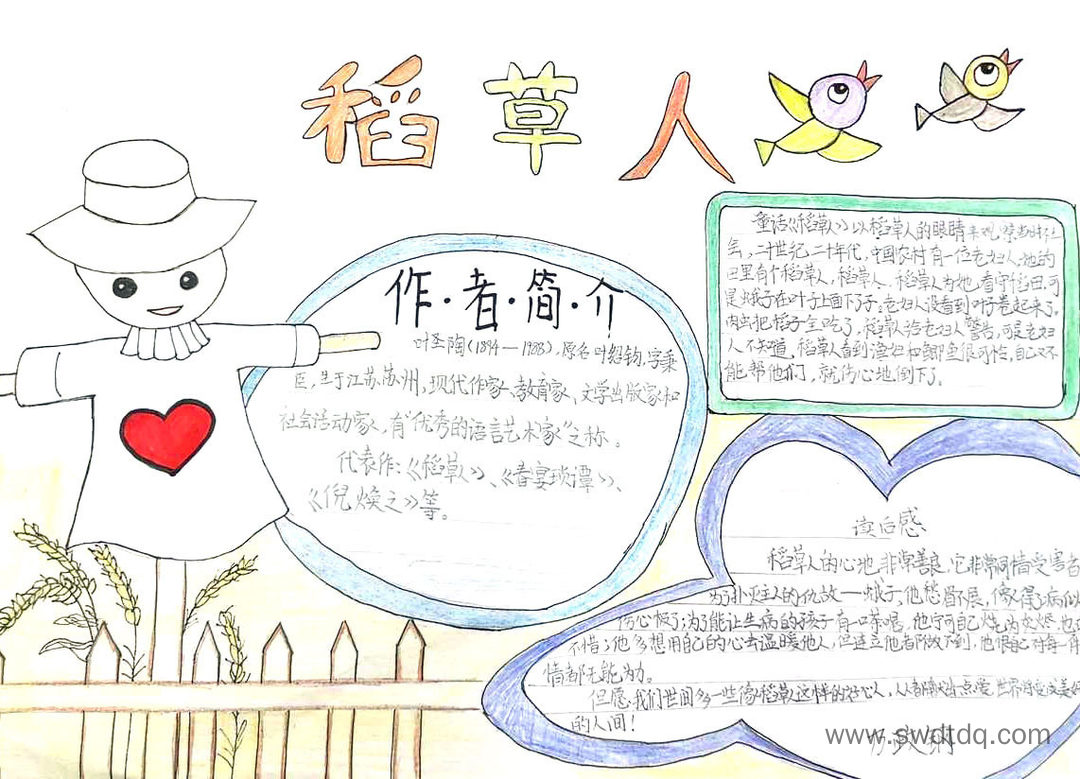 稻草人
作·者·简·介
叶圣陶(1894—1988),原名叶绍钧,字秉
臣,生于江苏苏州,现代作家、教育家、文学出版家和
社会活动家,有“优秀的语言艺术家”之称。
代表作:《稻草人》、《春宴琐谭》、
《倪焕之》等。
童话《稻草人》以稻草人的眼睛来观察当时社
会,二十世纪二十年代,中国农村有一位老妇人,她的
田里有个稻草人,稻草人、稻草人为她看守稻田,可
是蛾子在叶子上面下了子。老妇人没看到叶子卷起来了。
肉虫把稻子全吃了,稻草人给老妇人警告,可是老妇
人不知道,稻草人看到渔妇和鲫鱼很可怜,自己又不
能帮他们,就伤心地倒下了。
读后感
稻草人的心地非常善良,它非常同情受害者
为了扑灭主人的仇敌——蛾子,他愁眉不展,像得了病似
伤心极了;为了能让生病的孩子有一口茶喝,他宁可自己
不惜;他多想用自己的心去温暖他人,但这些他都做不到,他恨自己对每一件
情都无能为力。
但愿我们世间多一些像稻草人这样的好心人,世界将变成美好
的人间!
www.swdtdq.com